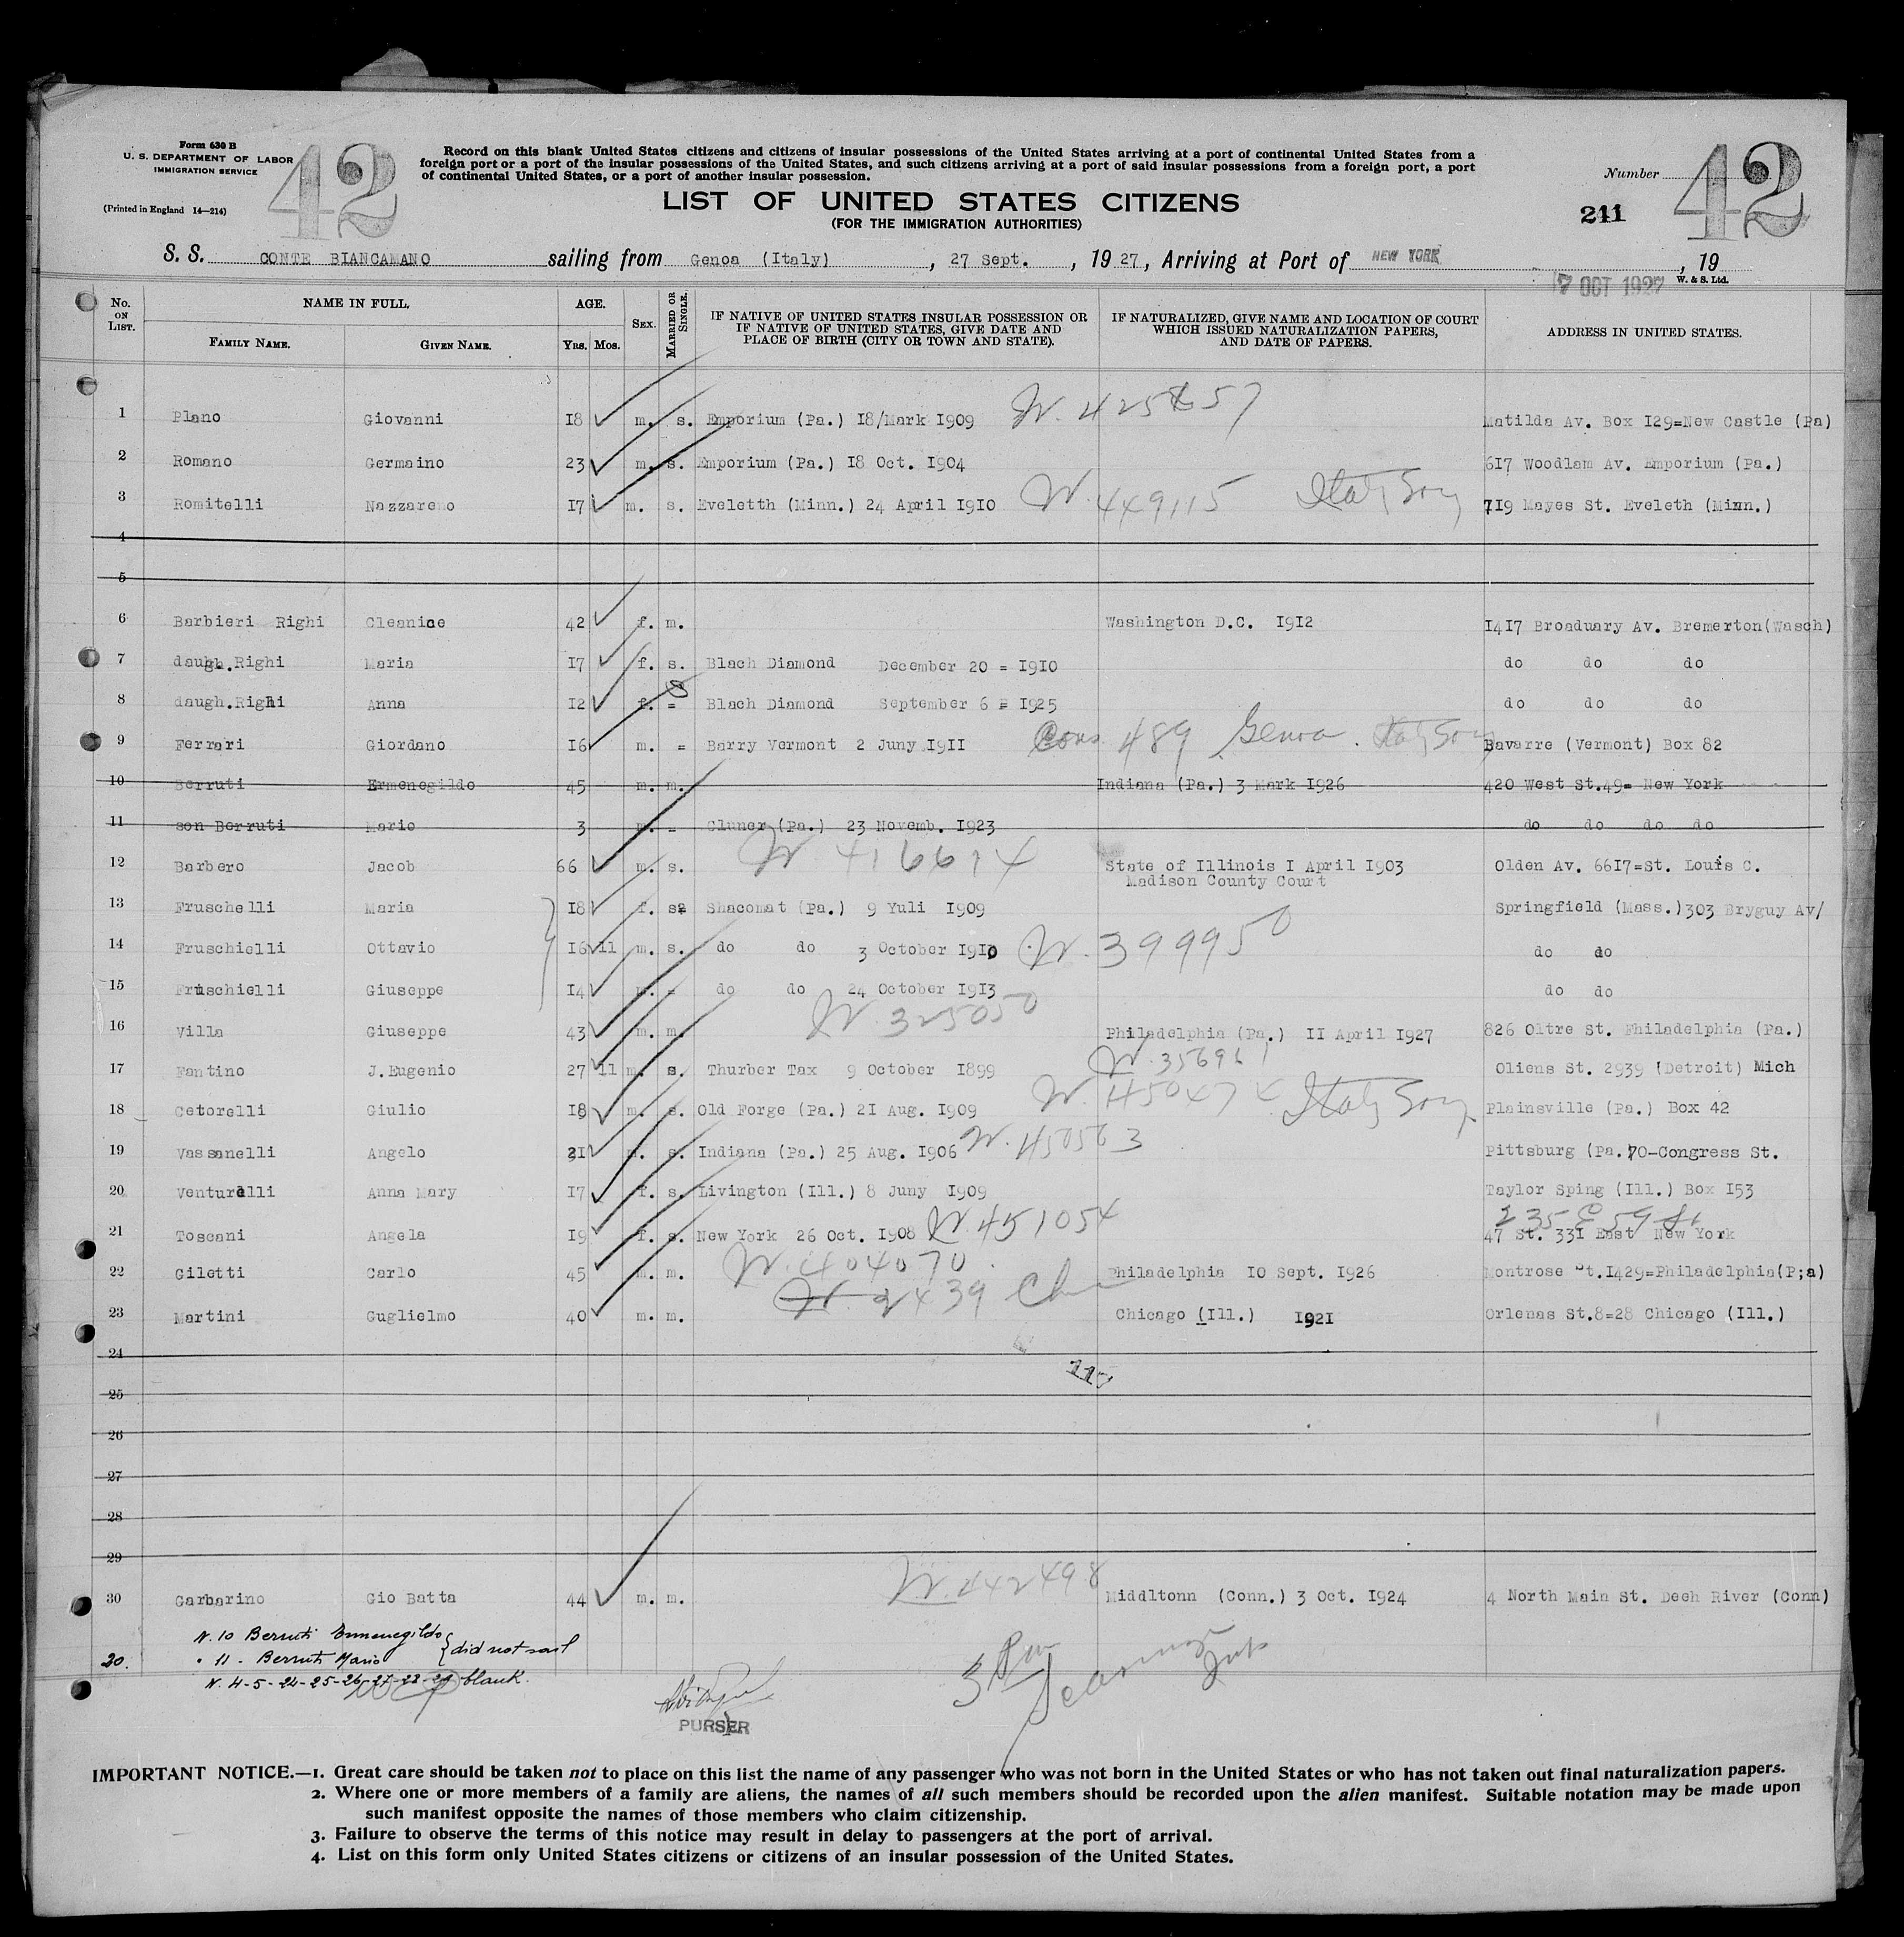 Form 630 B
U. S. DEPARTMENT OF LABOR
IMMIGRATION SERVICE
(Printed in England 14—214)
42
Record on this blank United States citizens and citizens of insular possessions of the United States arriving at a port of continental United States from a
foreign port or a port of the insular possessions of the United States, and such citizens arriving at a port of said insular possessions from a foreign port, a port
of continental United States, or a port of another insular possession.
LIST OF UNITED STATES CITIZENS
(FOR THE IMMIGRATION AUTHORITIES)
Number
42
211
S. S. CONTE BIANCAMANO sailing from Genoa (Italy), 27 Sept., 1927, Arriving at Port of NEW YORK, 19
7 OCT 1927
W. & S. Ltd.
No. ON LIST. NAME IN FULL. AGE. SEX. MARRIED OR SINGLE. IF NATIVE OF UNITED STATES INSULAR POSSESSION OR IF NATIVE OF UNITED STATES, GIVE DATE AND PLACE OF BIRTH (CITY OR TOWN AND STATE). IF NATURALIZED, GIVE NAME AND LOCATION OF COURT WHICH ISSUED NATURALIZATION PAPERS, AND DATE OF PAPERS. ADDRESS IN UNITED STATES.
FAMILY NAME. GIVEN NAME. YRS. MOS.
1 Plano Giovanni 18 m. s. Emporium (Pa.) I8/Mark I909 Matilda Av. Box I29=New Castle (Pa)
2 Romano Germaino 23 m. s. Emporium (Pa.) I8 Oct. I904 6I7 Woodlam Av. Emporium (Pa.)
3 Romitelli Nazzareno I7 m. s. Eveletth (Minn.) 24 April I9I0 W. 449115 7I9 Mayes St. Eveleth (Minn.)
4
5
6 Barbieri Righi Cleanice 42 f. m. Washington D.C. I9I2 I4I7 Broaduary Av. Bremerton(Wasch)
7 daugh.Righi Maria I7 f. s. Blach Diamond December 20 = I9I0 do do do
8 daugh.Righi Anna I2 f. = S Blach Diamond September 6 = I925 do do do
9 Ferrari Giordano I6 m. = Barry Vermont 2 Juny I9II Cons. 489 Genoa. Bavarre (Vermont) Box 82
10 Berruti Ermenegildo 45 m. m. Indiana (Pa.) 3 Mark I926 420 West St.49= New York
11 son Berruti Mario 3 m. = Cluner (Pa.) 23 Novemb. I923 do do do do
12 Barbero Jacob 66 m. s. W 416614 State of Illinois I April I903 Olden Av. 66I7=St. Louis C.
Madison County Court
13 Fruschelli Maria I8 f. s= Shacomat (Pa.) 9 Yuli I909 Springfield (Mass.)303 Bryguy Av/
14 Fruschielli Ottavio I6 11 m. s. do do 3 October I9I0 W. 399950 do do
15 Fruschielli Giuseppe I4 m. = do do 24 October I9I3 do do
16 Villa Giuseppe 43 m. m. W. 325050 Philadelphia (Pa.) II April I927 826 Oltre St. Philadelphia (Pa.)
17 Fantino J.Eugenio 27 11 m. s. Thurber Tax 9 October I899 W. 356961 Oliens St. 2939 (Detroit) Mich
18 Cetorelli Giulio I8 m. s. Old Forge (Pa.) 2I Aug. I909 Plainsville (Pa.) Box 42
19 Vassanelli Angelo 2I m. s. Indiana (Pa.) 25 Aug. I906 Pittsburg (Pa.) 70-Congress St.
20 Venturelli Anna Mary I7 f. s. Livington (Ill.) 8 Juny I909 Taylor Sping (Ill.) Box I53
235 E 59 St
21 Toscani Angela I9 f. s. New York 26 Oct. I908 W. 451054 47 St. 33I East New York
22 Giletti Carlo 45 m. m. W. 404070 Philadelphia I0 Sept. I926 Montrose St.I429=Philadelphia(P;a)
23 Martini Guglielmo 40 m. m. W. 2439 Chicago (Ill.) I92I Orlenas St.8=28 Chicago (Ill.)
24
117
25
26
27
28
29
30 Garbarino Gio Batta 44 m. m. W. 442498 Middltonn (Conn.) 3 Oct. I924 4 North Main St. Deeh River (Conn)
N. 10 Berruti Ermenegildo
" 11 - Berruti Mario } did not sail
20.
N. 4-5-24-25-26-27-28-29 blank.
PURSER
IMPORTANT NOTICE.—1. Great care should be taken not to place on this list the name of any passenger who was not born in the United States or who has not taken out final naturalization papers.
2. Where one or more members of a family are aliens, the names of all such members should be recorded upon the alien manifest. Suitable notation may be made upon
such manifest opposite the names of those members who claim citizenship.
3. Failure to observe the terms of this notice may result in delay to passengers at the port of arrival.
4. List on this form only United States citizens or citizens of an insular possession of the United States.